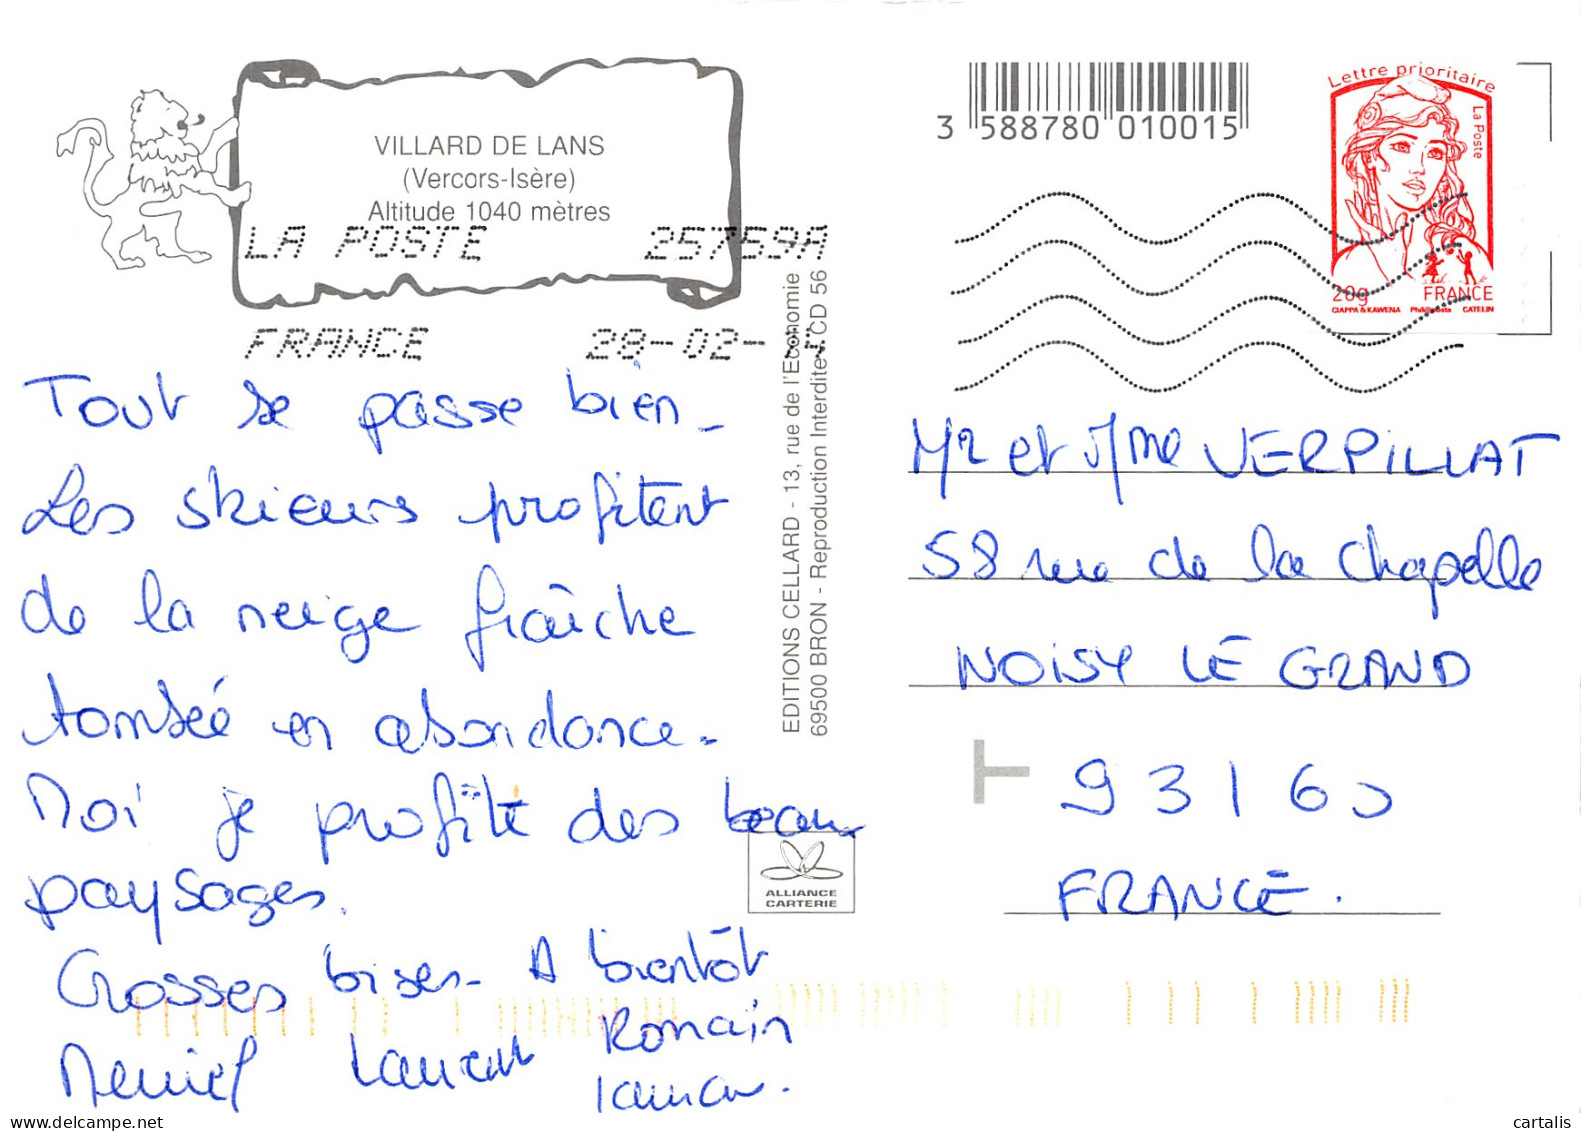 VILLARD DE LANS
(Vercors-Isère)
Altitude 1040 mètres
LA POSTE 25759A
FRANCE 28-02-
Tout se passe bien_
Les skieurs profitent
de la neige fraîche
tombée en abondance.
Moi je profite des beaux
paysages.
Grosses bises_ A bientôt
Laurent Romain
EDITIONS CELLARD - 13, rue de l'Economie
69500 BRON - Reproduction Interdite CD 56
ALLIANCE
CARTERIE
3 588780 010015
Lettre prioritaire
La Poste
20g FRANCE
CIAPPA & KAWENA Phil@poste CATELIN
Mr et Mme VERPILLAT
58 rue de la Chapelle
NOISY LE GRAND
93160
FRANCE.
cartalis
www.delcampe.net